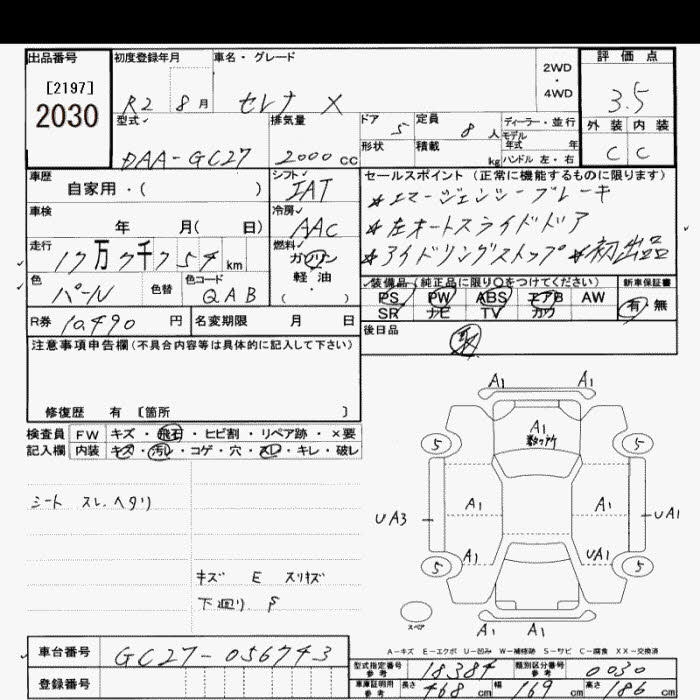 出品番号
[2197]
2030
初度登録年月
R2 8月
車名・グレード
セレナ X
2WD
・
4WD
評価点
3.5
外装 内装
C C
型式
DAA-GC27
排気量
2000 cc
ドア 5
定員 8 人
形状
積載 kg
ディーラー・並行
モデル
年式 年
ハンドル 左・右
車歴
自家用・( )
シフト
IAT
車検
年 月( 日)
冷房
AAC
走行
17万7千754 km
燃料
ガソリン
軽・油
・( )
色
パール
色替
色コード
QAB
R券 10,490 円
名変期限 月 日
セールスポイント (正常に機能するものに限ります)
*エマージェンシーブレーキ
*左オートスライドドア
*アイドリングストップ *初出品
装備品 (純正品に限り○をつけてください)
PS PW ABS エアB AW
SR ナビ TV カワ
新車保証書
有・無
後日品
取
注意事項申告欄(不具合内容等は具体的に記入して下さい)
修復歴 有 [箇所 ]
検査員 FW キズ・飛石・ヒビ割・リペア跡・×要
記入欄 内装 キズ・汚レ・コゲ・穴・スレ・キレ・破レ
シート スレ、ヘタリ
キズ E スリキズ
下廻り S
A1 A1
A1
数ヶ所
5 5
UA3 A1 A1 UA1
A1 UA1
5 5
スペア
A1 A1
A-キズ E-エクボ U-凹み W-補修跡 S-サビ C-腐食 XX-交換済
車台番号 GC27-056743
登録番号
型式指定番号
参考
18384
類別区分番号
参考
0030
車庫証明用
参考
長さ 468 cm 幅 169 cm 高さ 186 cm